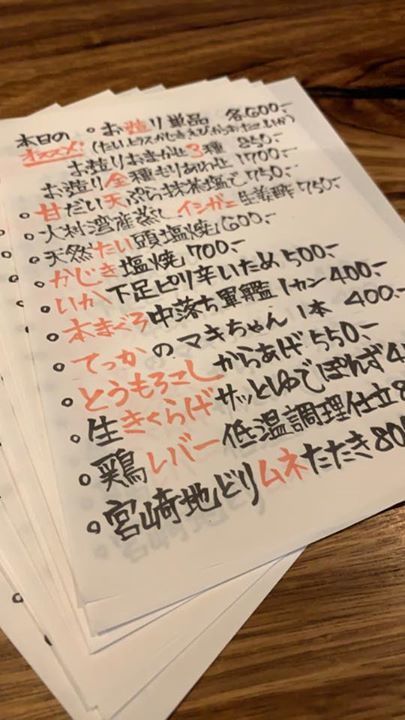 本日の オススメ!
○お造り単品 各600.-
(たい ヒラス かじき えび かんぱち たこ いか)
お造りおまかせ3種 850.-
お造り全種もりあわせ 1700.-
○甘だい天ぷら抹茶塩で 750.-
○大村湾産蒸しイシガニ生姜酢 750.-
○天然たい頭塩焼 600.-
○かじき塩焼 700.-
○いか下足ピリ辛いため 500.-
○本まぐろ中落ち軍艦1カン 400.-
○てっかのマキちゃん1本 400.-
○とうもろこしからあげ 550.-
○生きくらげサッとゆでぽんず
○鶏レバー低温調理仕立
○宮崎地どりムネたたき